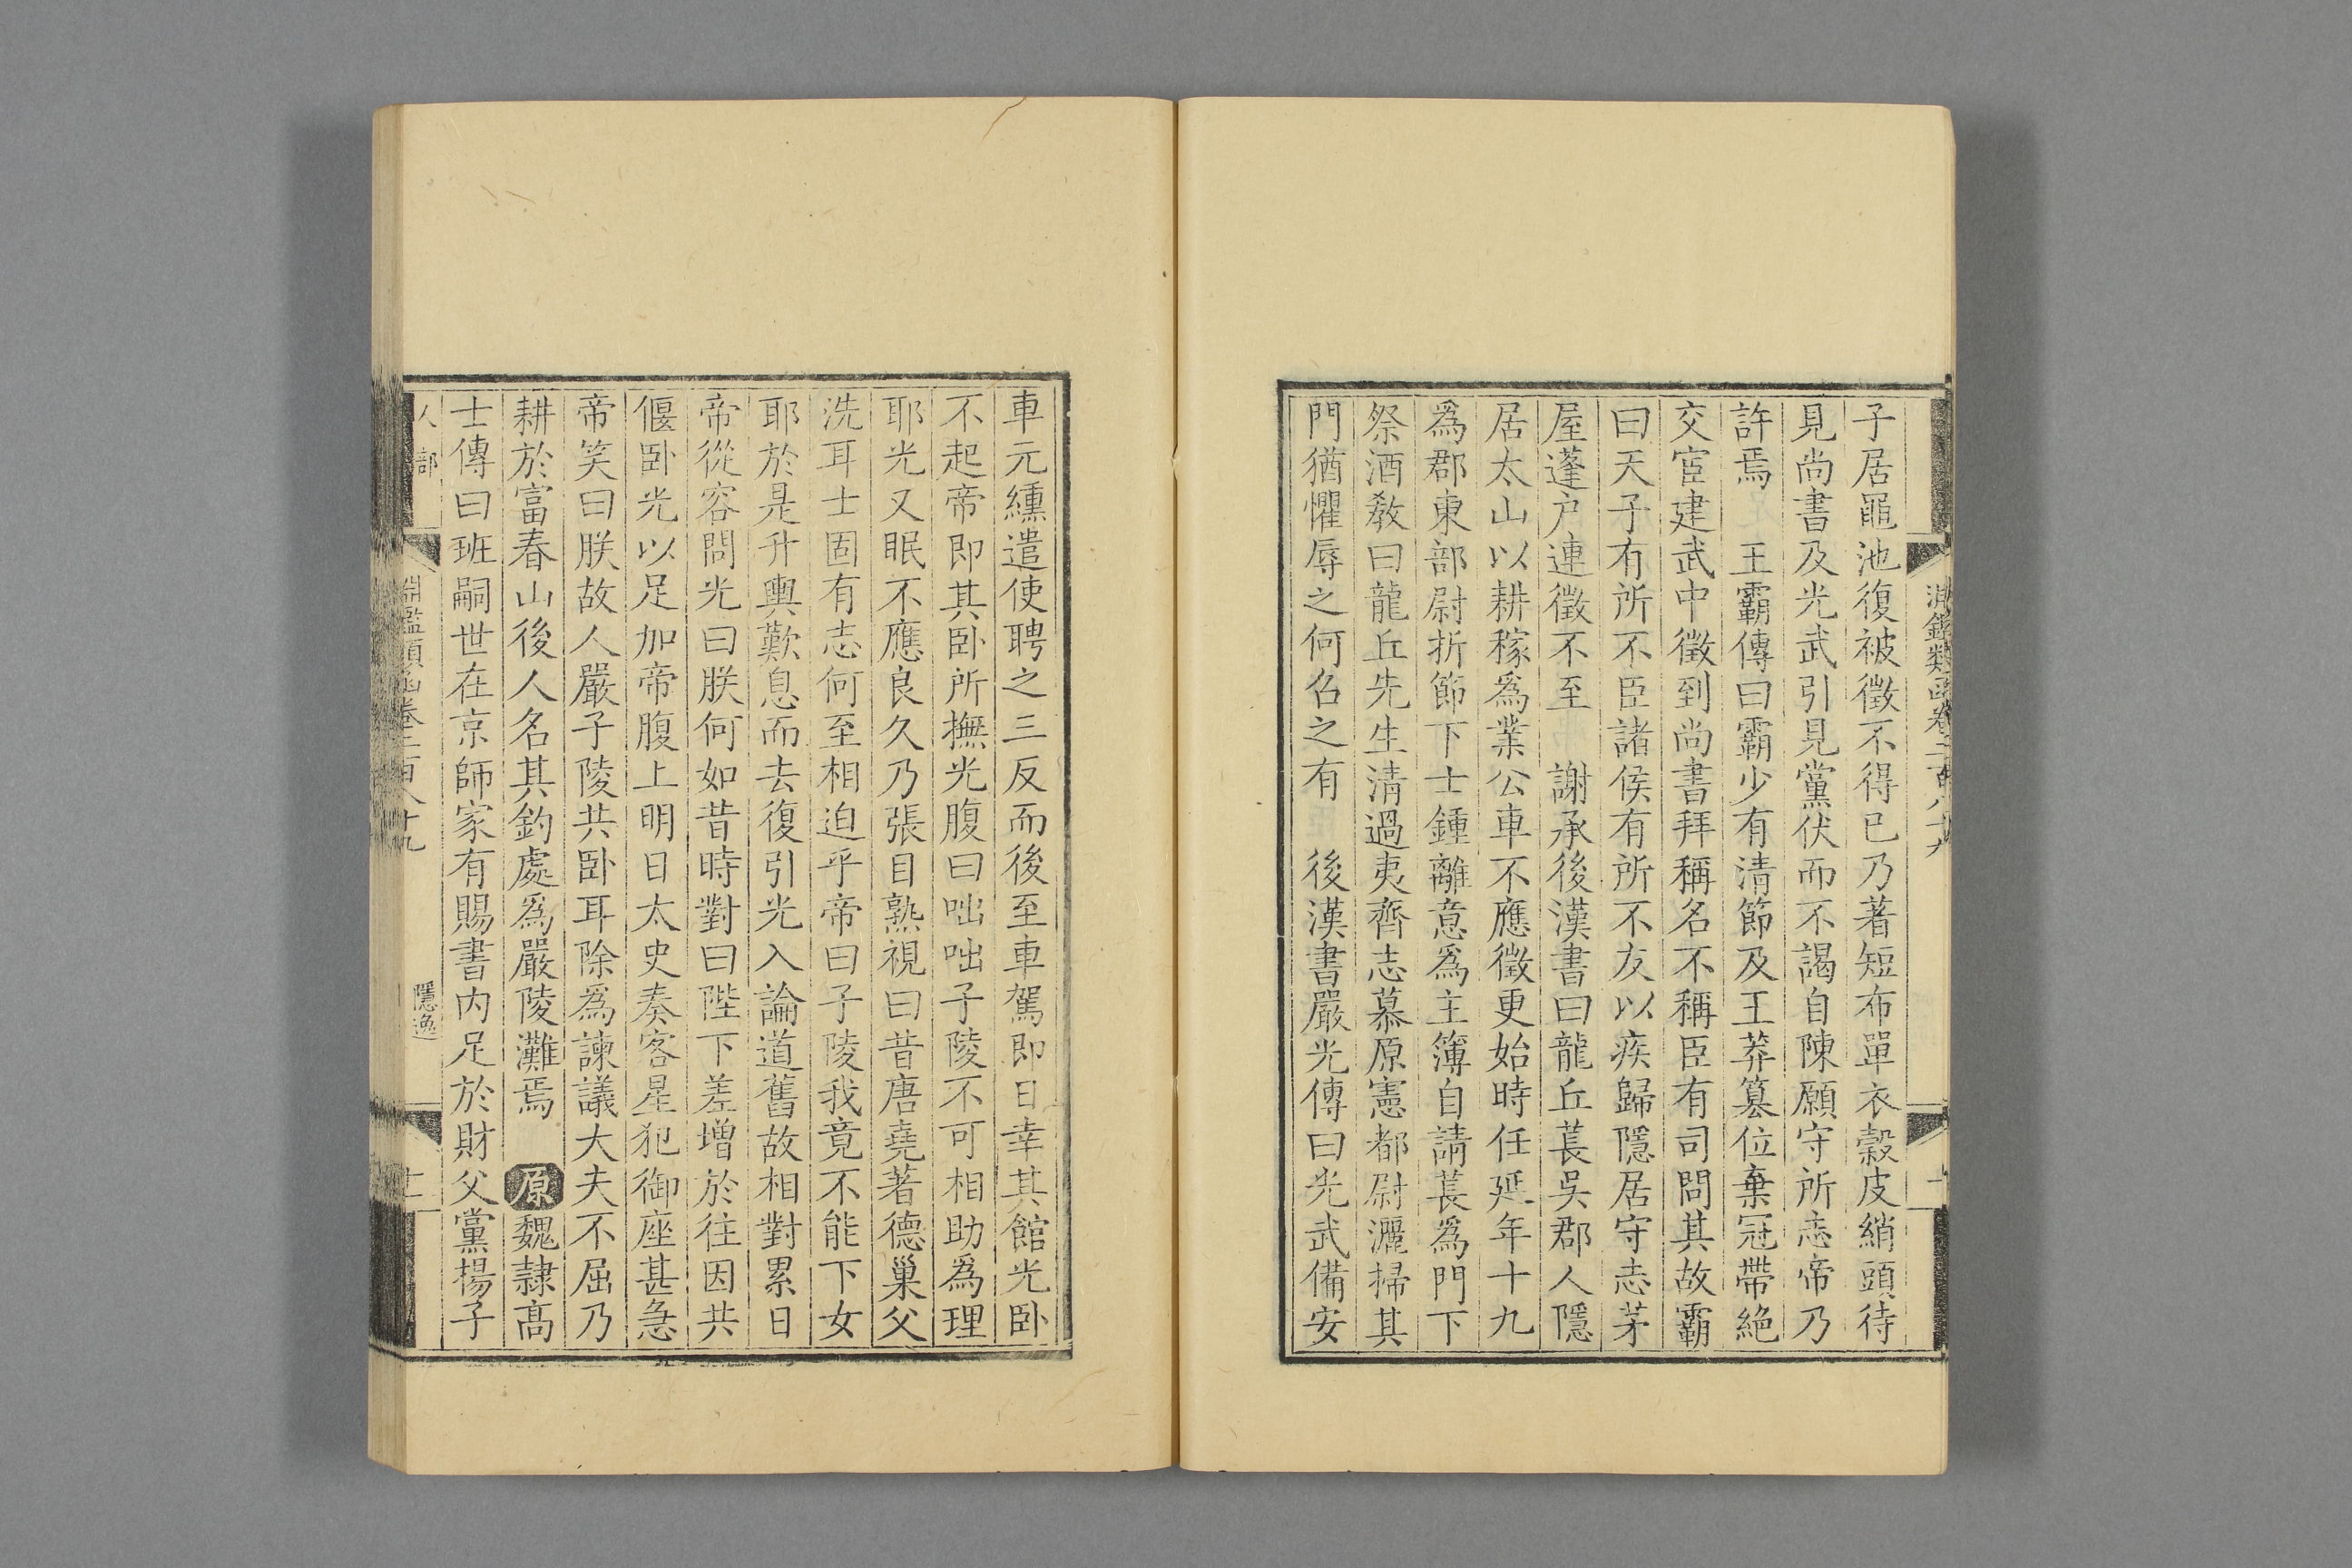 淵鑑類函卷二百八十九
子居黽池復被徵不得已乃著短布單衣穀皮綃頭待
見尚書及光武引見黨伏而不謁自陳願守所志帝乃
許焉　王霸傳曰霸少有清節及王莽篡位棄冠帶絕
交宦建武中徵到尚書拜稱名不稱臣有司問其故霸
曰天子有所不臣諸侯有所不友以疾歸隱居守志茅
屋蓬户連徵不至　謝承後漢書曰龍丘萇吳郡人隱
居太山以耕稼爲業公車不應徵更始時任延年十九
爲郡東部尉折節下士鍾離意爲主簿自請萇爲門下
祭酒敎曰龍丘先生清過夷齊志慕原憲都尉灑掃其
門猶懼辱之何召之有　後漢書嚴光傳曰光武備安
車元纁遣使聘之三反而後至車駕即日幸其館光卧
不起帝即其卧所撫光腹曰咄咄子陵不可相助為理
耶光又眠不應良久乃張目熟視曰昔唐堯著德巢父
洗耳士固有志何至相迫乎帝曰子陵我竟不能下女
耶於是升輿歎息而去復引光入論道舊故相對累日
帝從容問光曰朕何如昔時對曰陛下差增於往因共
偃卧光以足加帝腹上明日太史奏客星犯御座甚急
帝笑曰朕故人嚴子陵共卧耳除爲諫議大夫不屈乃
耕於富春山後人名其釣處爲嚴陵灘焉　原魏隷高
士傳曰班嗣世在京師家有賜書内足於財父黨揚子
人部　淵鑑類函卷二百八十九　隱逸　十一